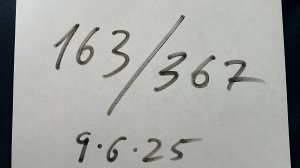 163/367
9.6.25